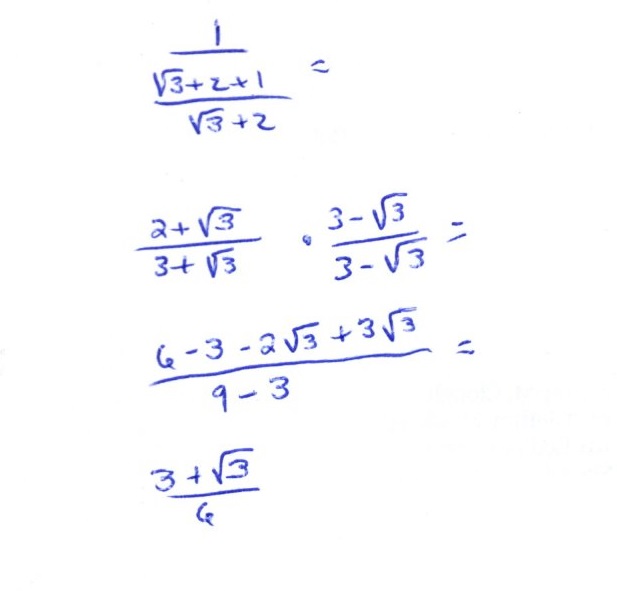 1
√3+2+1 =
√3+2
2+√3 · 3-√3 =
3+√3 3-√3
6-3-2√3+3√3 =
9-3
3+√3
6